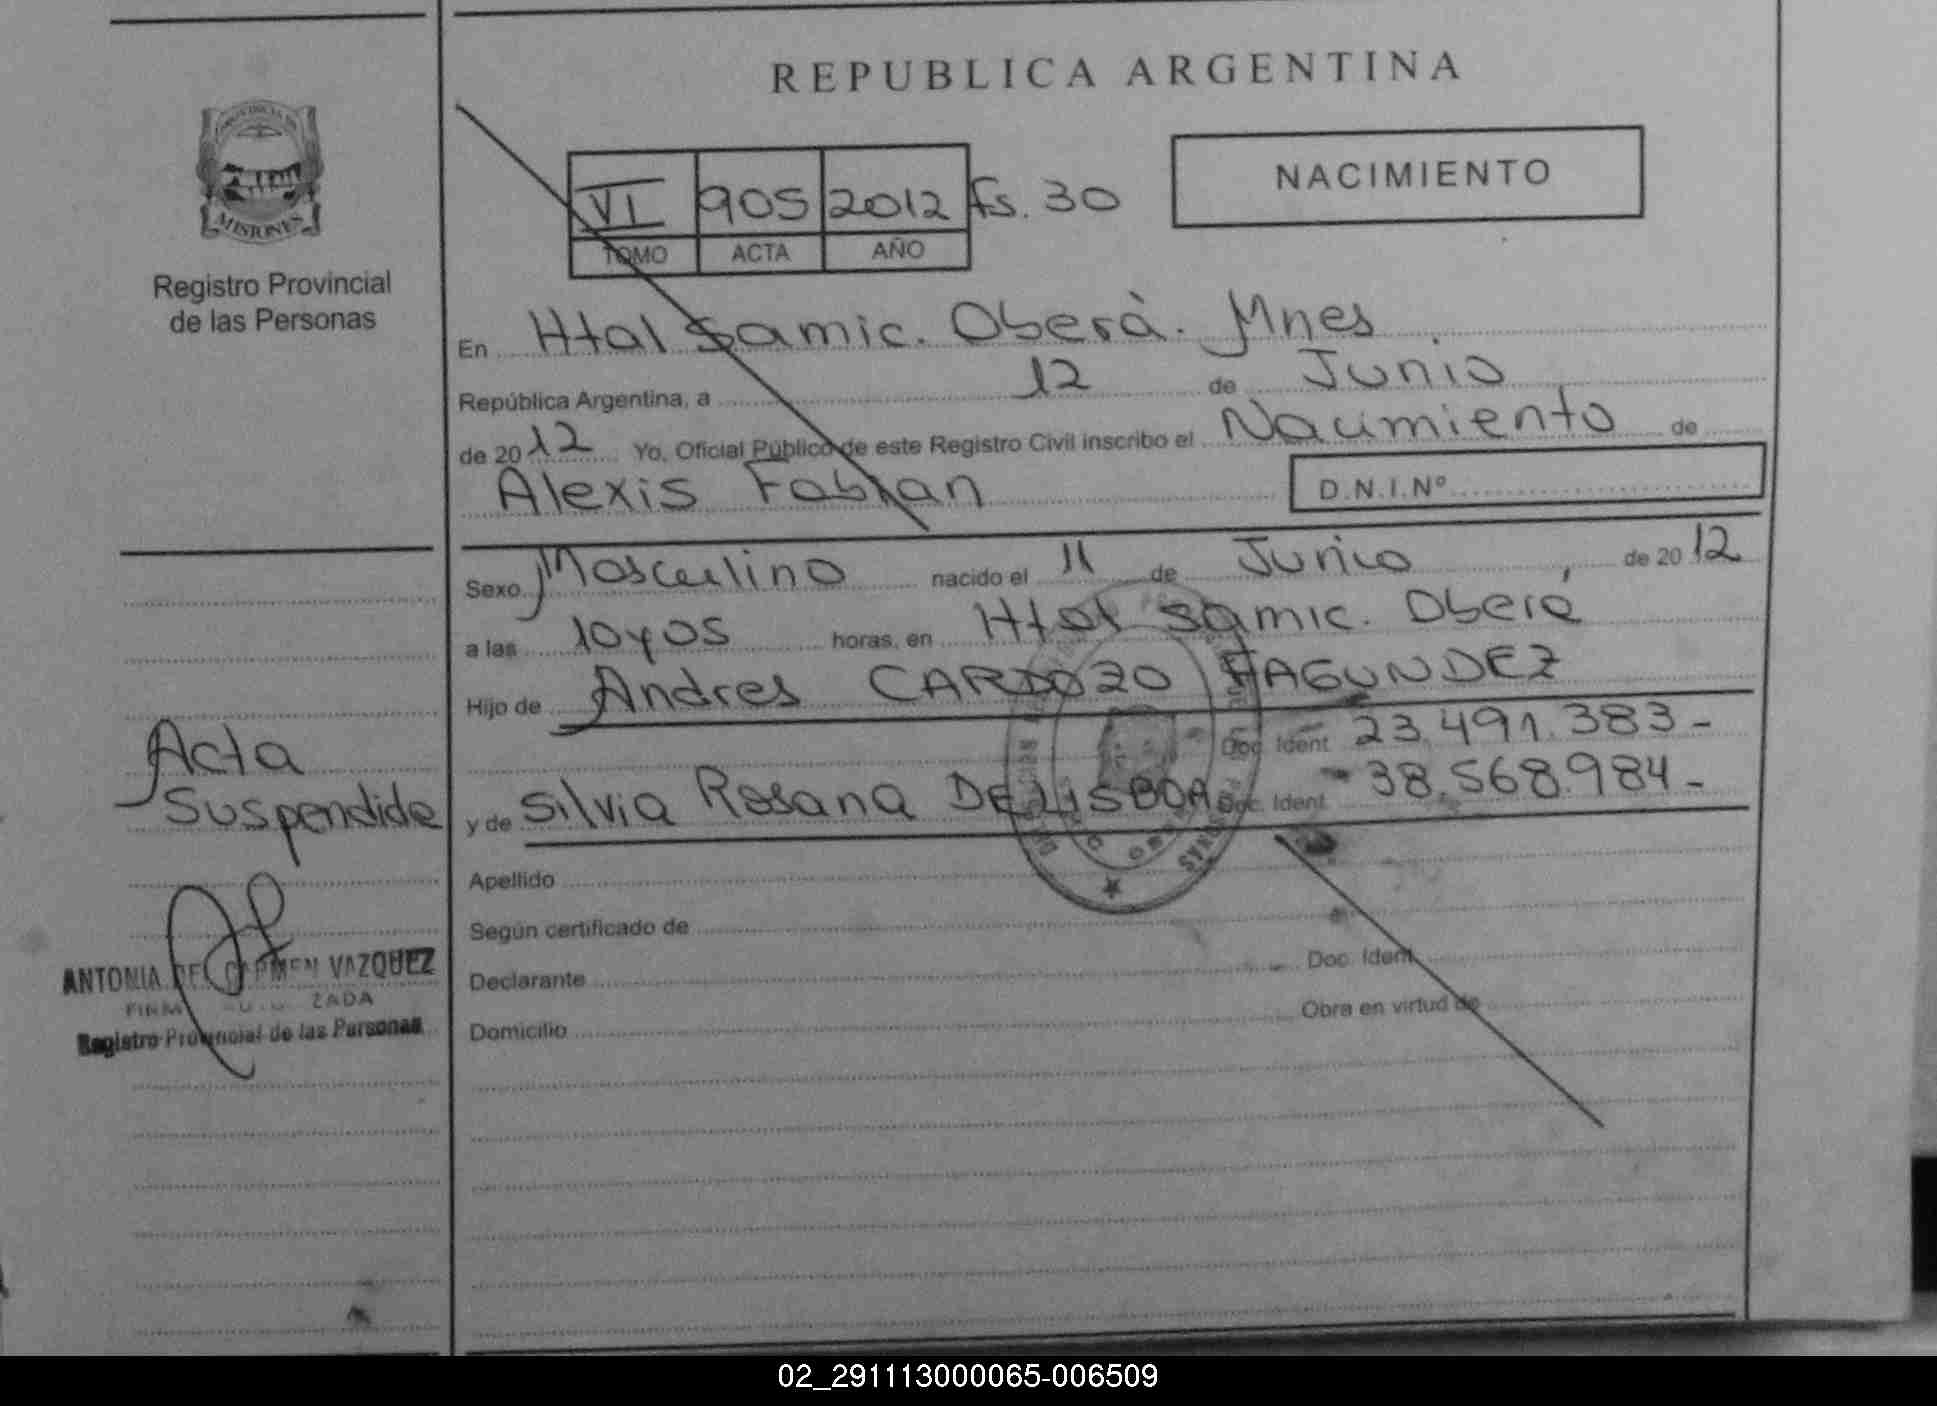 REPUBLICA ARGENTINA
NACIMIENTO
VI 905 2012 Fs. 30
TOMO ACTA AÑO
PROVINCIA DE
MISIONES
Registro Provincial
de las Personas
En Htal Samic. Oberà. Mnes
República Argentina, a 12 de Junio
de 2012 Yo, Oficial Público de este Registro Civil inscribo el Nacimiento de
Alexis Fabian D.N.I.Nº
Sexo Masculino nacido el 11 de Junio de 2012
a las 10y05 horas, en Htal Samic. Oberá
Hijo de Andres CARDOZO FAGUNDEZ
Doc. Ident 23.491.383-
y de Silvia Rosana DE LISBOA Doc. Ident 38.568.984-
Apellido
Según certificado de
Declarante Doc. Ident.
Domicilio Obra en virtud de
Acta
Suspendida
ANTONIA DEL CARMEN VAZQUEZ
Registro Provincial de las Personas
02_291113000065-006509